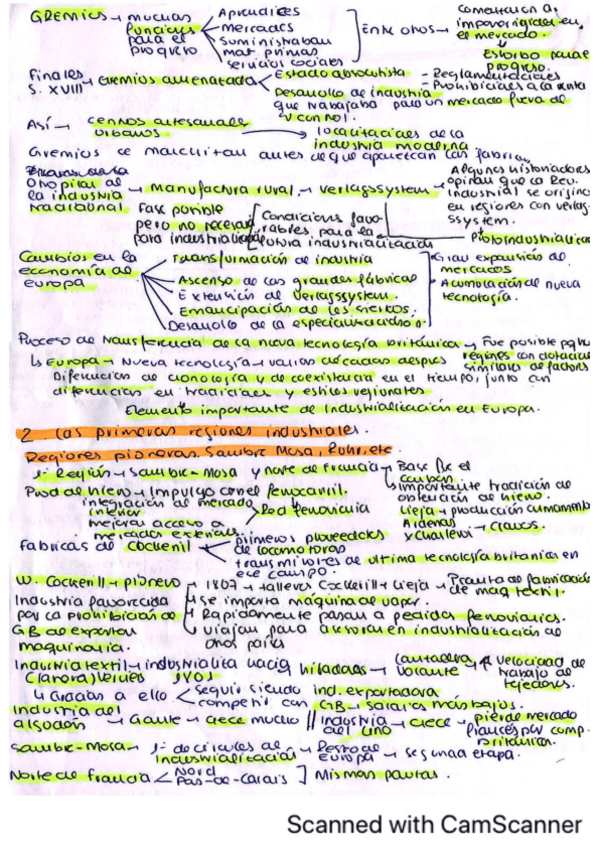 GREMIOS → muchas funciones para el progreso
Aprendices
Mercados
Suministraban mat primas
servicios sociales
Entre otros → comenzaron a
imponer rigidez en
el mercado.
Estorbo para el
progreso.
Finales S. XVIII → Gremios amenazados
Estado absolutista - Reglamentaciones
Prohibiciones a la venta
Desarrollo de industria
que trabajaba para un mercado fuera de
control.
Así → centros artesanales urbanos → localizaciones de la
industria moderna
Gremios se marchitan antes de que aparezcan las fábricas
la industria tradicional → manufactura rural → verlagssystem → Algunos historiadores
opinan que la Rev.
Industrial se origina
en regiones con verlags-
system.
Fase posible
pero no necesaria
para industrialización
Condiciones favo-
rables para la
futura industrialización
Protoindustrialización
Cambios en la
economía de
Europa
Transformación de industria
Ascenso de las grandes fábricas
Extensión del verlagssystem.
Emancipación de los siervos.
Desarrollo de la especialización
Gran expansión de
mercados
Acumulación de nueva
tecnología.
Proceso de transferencia de la nueva tecnología británica → Fue posible pq hu
regiones con dotación
similares de factores
↳ Europa → Nueva tecnología → varias décadas después
Diferencias de cronología y de coexistencia en el tiempo, junto con
diferencias en tradiciones y estilos regionales
Elemento importante de Industrialización en Europa.
2. Las primeras regiones industriales.
Regiones pioneras. Sambre Mosa, Ruhr, etc
1ª Región → Sambre-Mosa y norte de Francia → Base fue el
carbón.
importante tradición de
obtención de hierro.
Lieja → producción armamento
Ardenas y Charleroi → Clavos.
Prod de hierro → Impulso con el ferrocarril.
integración de mercado
interior
mejorar acceso a
mercados exteriores
Red ferroviaria
Fabricas de Cockerill
primeros proveedores
de locomotoras
transmisores de ultima tecnología británica en
ese campo.
W. Cockerill → pionero
1807 → talleres Cockerill → Lieja → Planta de fabricación
de maq textil.
Se importa máquina de vapor.
Rapidamente pasan a pedidos ferroviarios.
viajan para asesorar en industrialización de
otros países
Industria favorecida
por la prohibición de
GB de exportar
maquinaria.
Industria textil → industrializa hacia hilados → Lanzadera volante → ↑ velocidad de
trabajo de
tejedores.
(lana) Verviers 1700s
↳ Gracias a ello
Seguir siendo ind. exportadora
competir con GB → salarios más bajos.
Industria del
algodón → Gante → crece mucho // Industria del lino → crece → pierde mercado
francés por comp.
británica.
Sambre-Mosa → 1º de círculos de
industrialización → Resto de
Europa → segunda etapa.
Norte de Francia < Nord
Pas-de-Calais ] Mismas pautas.
Scanned with CamScanner